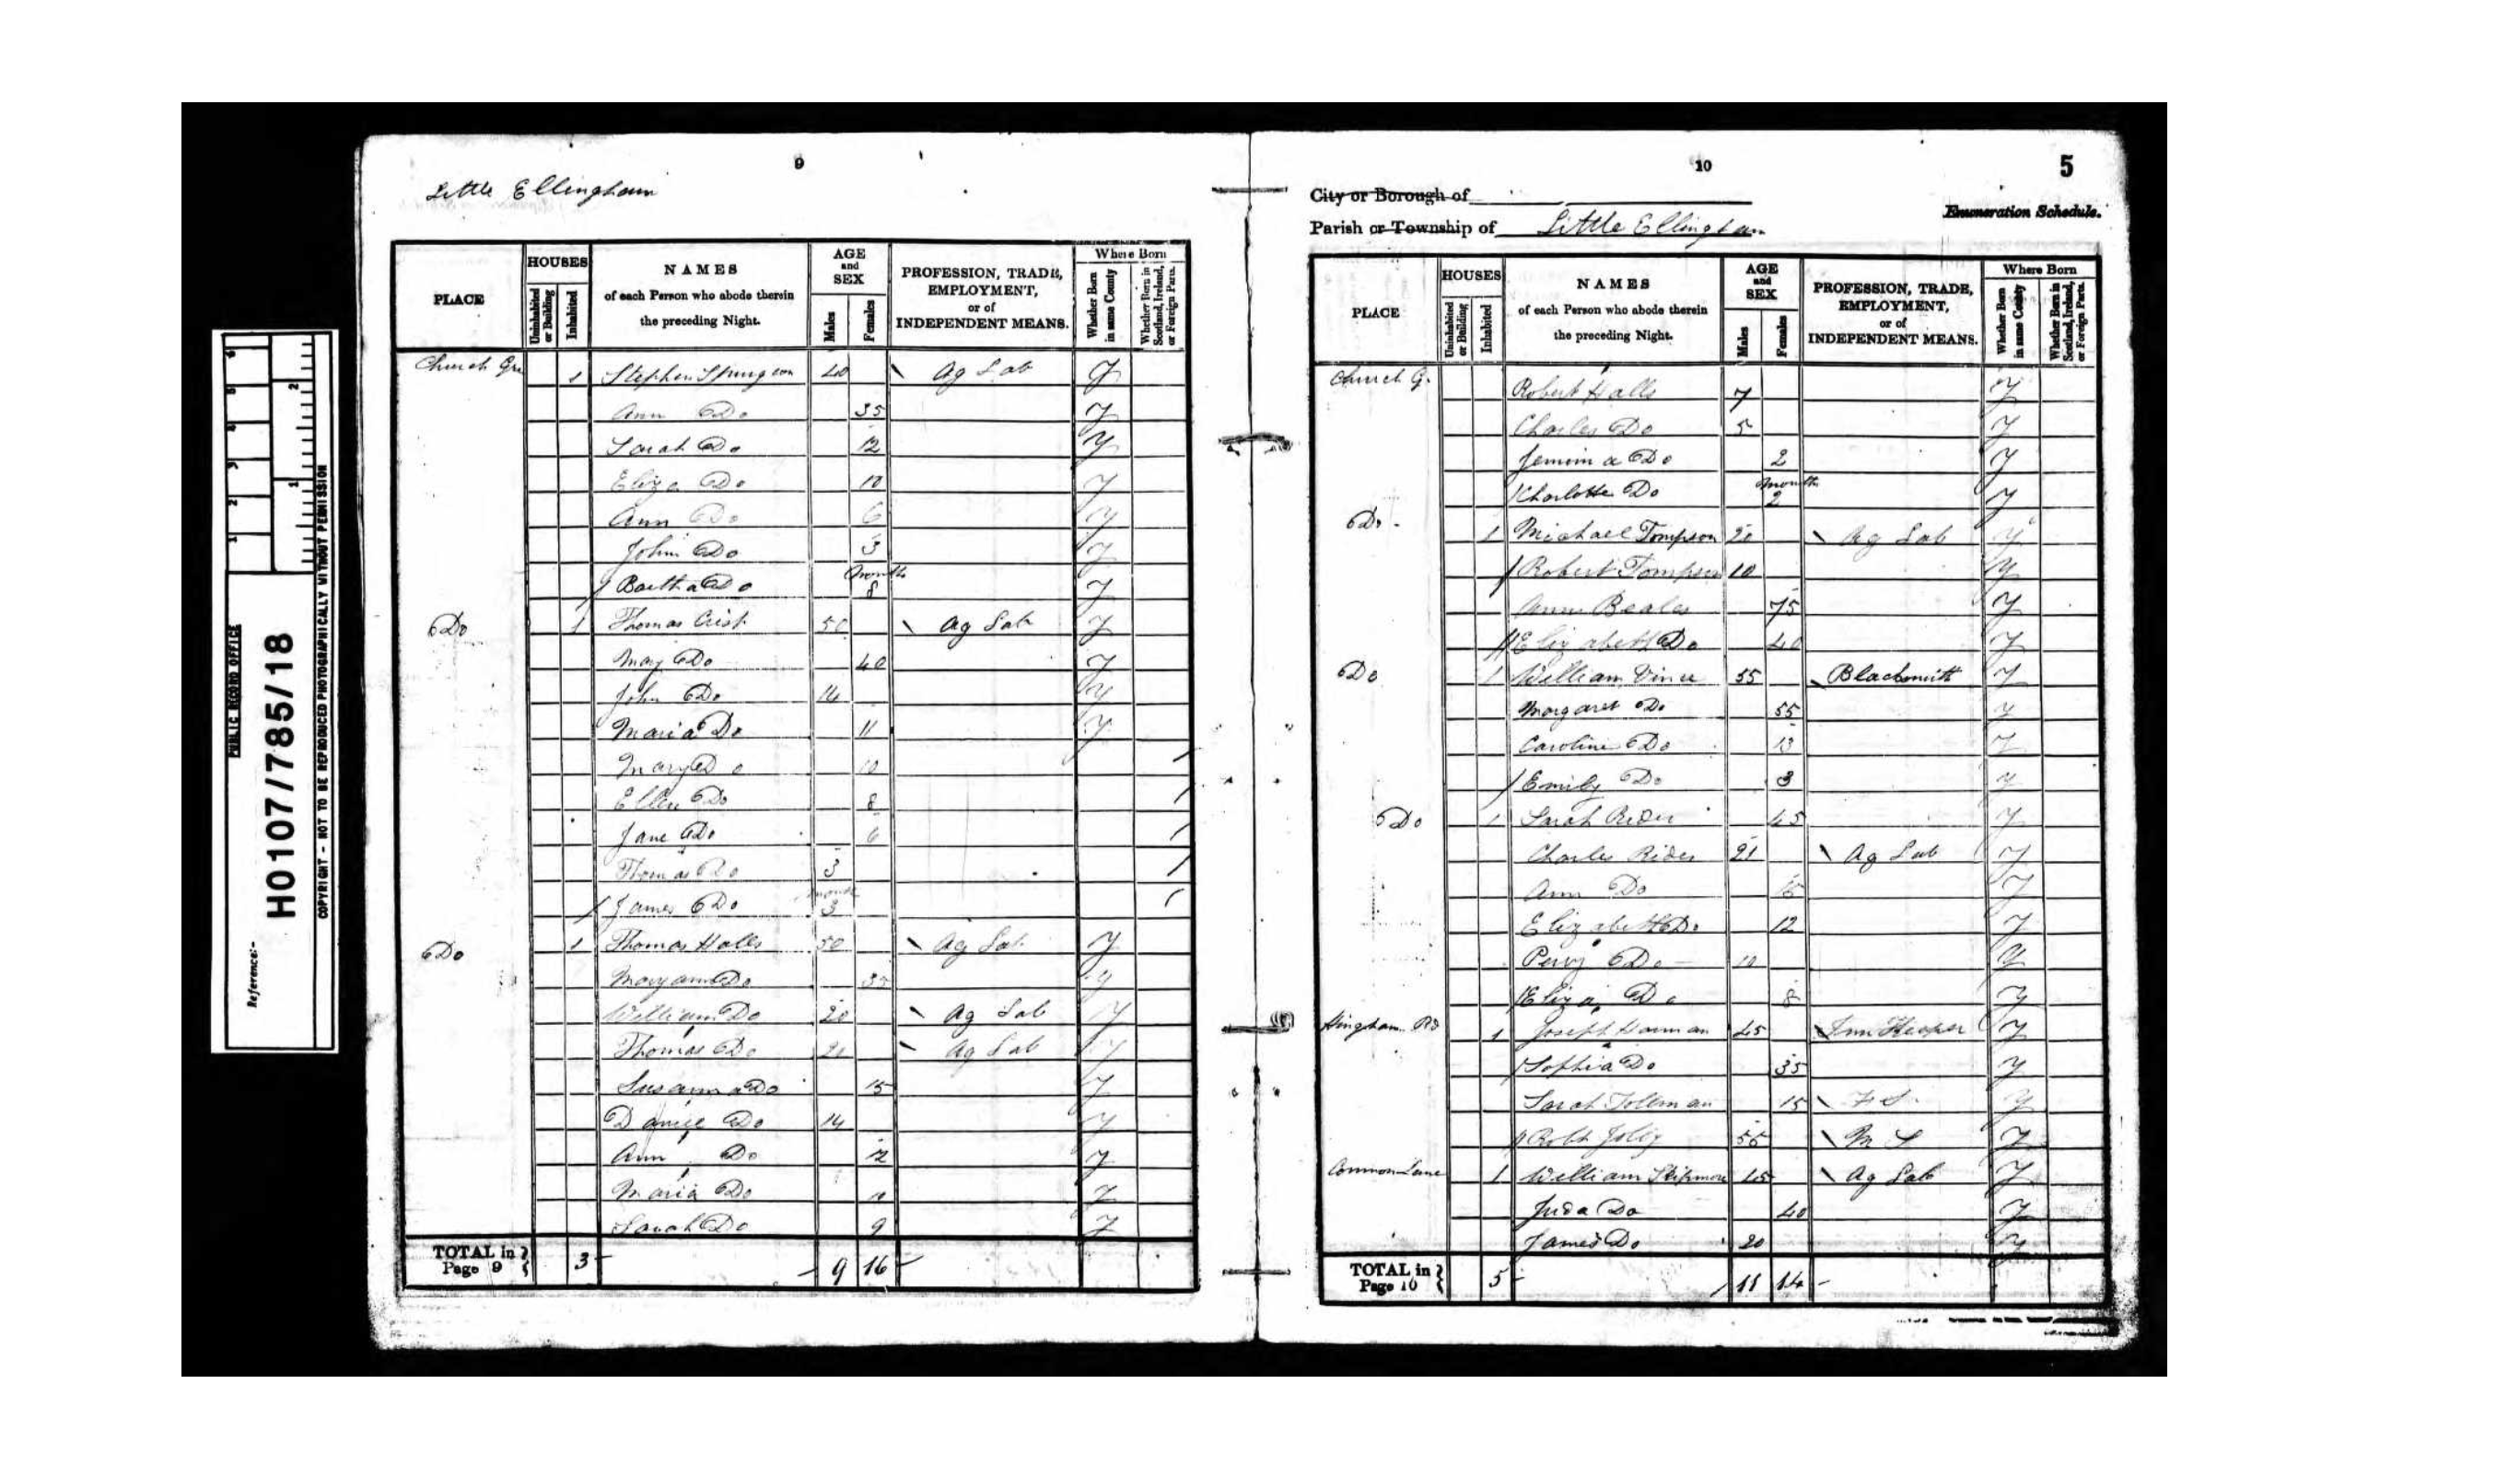 PUBLIC RECORD OFFICE
Reference:-
HO107/785/18
COPYRIGHT - NOT TO BE REPRODUCED PHOTOGRAPHICALLY WITHOUT PERMISSION
9
Little Ellingham
PLACE
HOUSES
Uninhabited or Building
Inhabited
NAMES
of each Person who abode therein
the preceding Night.
AGE
and
SEX
Males
Females
PROFESSION, TRADE,
EMPLOYMENT,
or of
INDEPENDENT MEANS.
Where Born
Whether Born in same County
Whether Born in Scotland, Ireland, or Foreign Parts.
Church Grn 1 Stephen Spurgeon 40 Ag Lab Y
Ann Do 35 Y
Sarah Do 12 Y
Eliza Do 10 Y
Ann Do 6 Y
John Do 3 Y
months
Do 8 Y
Do 1 Thomas Crisp 50 Ag Lab Y
Mary Do 40 Y
John Do 14 Y
Maria Do 11 Y
Mary Do 10
Ellen Do 8
Jane Do 6
Thomas Do 3
months
James Do 3
Do 1 Thomas Halls 50 Ag Lab Y
Maryann Do 35 Y
William Do 20 Ag Lab Y
Thomas Do 20 Ag Lab Y
Susanna Do 15 Y
Daniel Do 14 Y
Ann Do 12 Y
Maria Do 10 Y
Sarah Do 9 Y
TOTAL in Page 9 3 9 16
10
5
City or Borough of
Parish or Township of Little Ellingham
Enumeration Schedule.
PLACE
HOUSES
Uninhabited or Building
Inhabited
NAMES
of each Person who abode therein
the preceding Night.
AGE
and
SEX
Males
Females
PROFESSION, TRADE,
EMPLOYMENT,
or of
INDEPENDENT MEANS.
Where Born
Whether Born in same County
Whether Born in Scotland, Ireland, or Foreign Parts.
Church G. Robert Halls 7 Y
Charles Do 5 Y
Jemima Do 2 Y
months
Charlotte Do 2 Y
Do 1 Michael Tompson 20 Ag Lab Y
Robert Tompson 10 Y
Ann Beales 75 Y
Elizabeth Do 40 Y
Do 1 William Vince 55 Blacksmith Y
Margaret Do 55 Y
Caroline Do 13 Y
Emily Do 3 Y
Do 1 Sarah Rider 45 Y
Charles Rider 21 Ag Lab Y
Ann Do 15 Y
Elizabeth Do 12 Y
Percy Do 10 Y
Eliza Do 8 Y
Hingham Rd 1 Joseph Harman 45 Inn Keeper Y
Sophia Do 35 Y
Sarah Tollman 15 F S Y
Robt Jolly 55 M S Y
Common Lane 1 William Skipmore 45 Ag Lab Y
Juda Do 40 Y
James Do 20 Y
TOTAL in Page 10 5 11 14